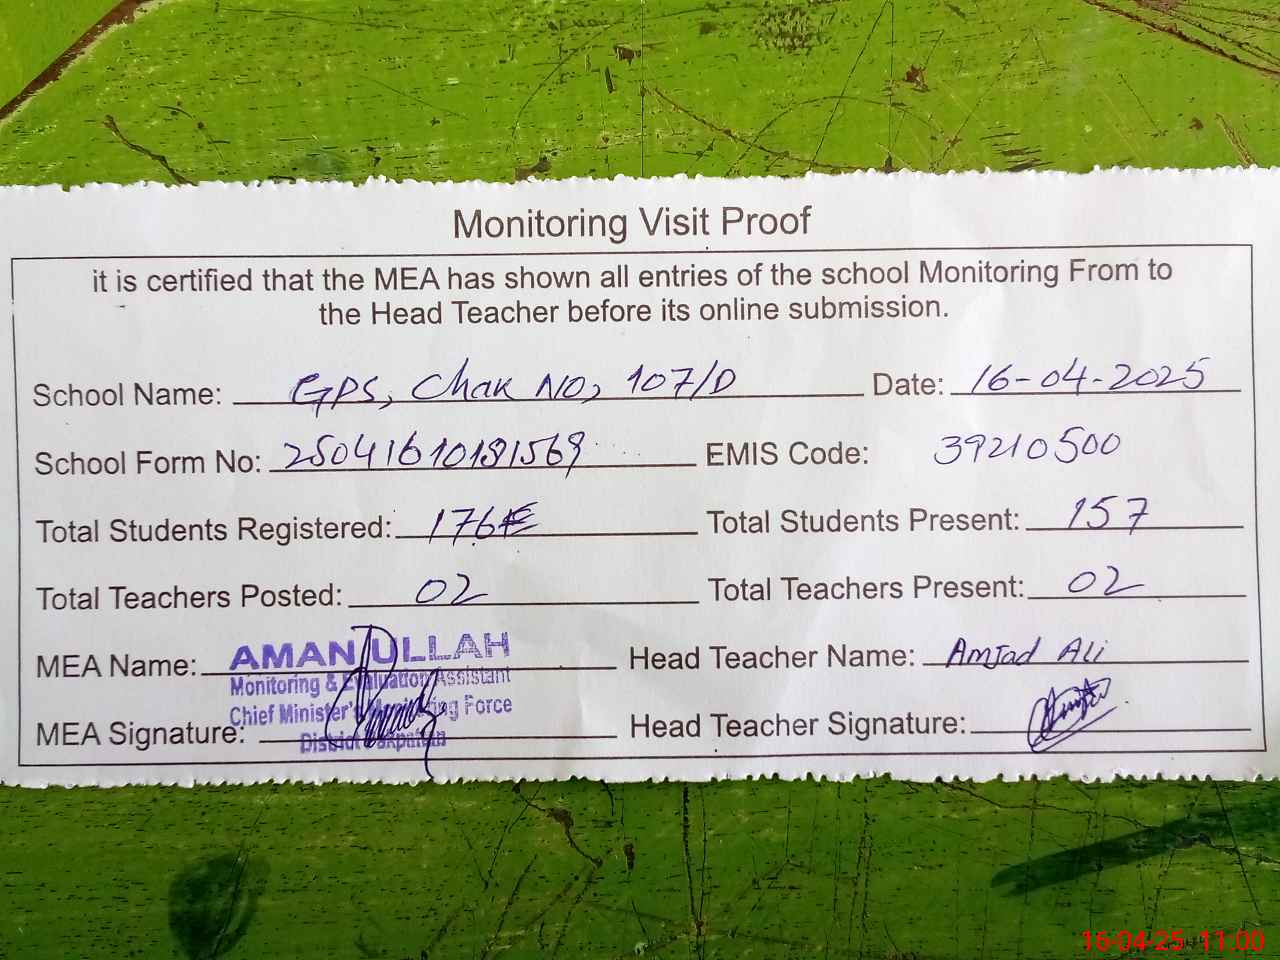 Monitoring Visit Proof
it is certified that the MEA has shown all entries of the school Monitoring From to
the Head Teacher before its online submission.
School Name: GPS, Chak NO, 107/D Date: 16-04-2025
School Form No: 25041610181569 EMIS Code: 39210500
Total Students Registered: 176 Total Students Present: 157
Total Teachers Posted: 02 Total Teachers Present: 02
MEA Name: AMAN ULLAH Head Teacher Name: Amjad Ali
Monitoring & Evaluation Assistant
Chief Minister's Monitoring Force
MEA Signature: Head Teacher Signature:
District Pakpattan
16-04-25 11:00